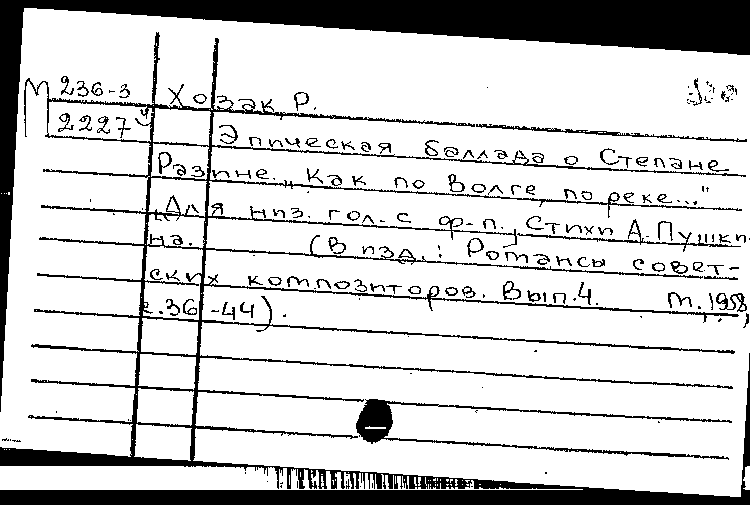 М 236-3 Хозак, Р.
2227
Эпическая баллада о Степане
Разине „Как по Волге, по реке..."
Для низ. гол. с ф-п., Стихи А. Пушки-
на. (В изд.: Романсы совет-
ских композиторов. Вып. 4. М., 1958,
с. 36-44).